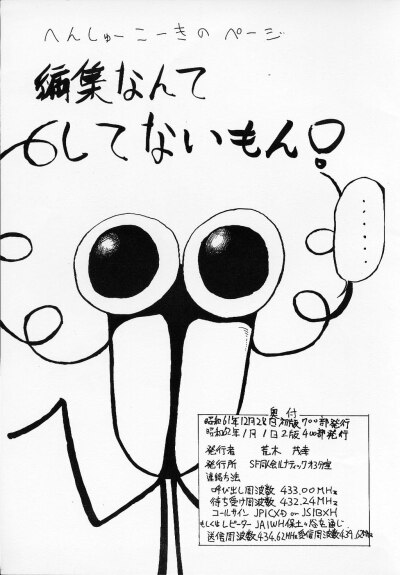 へんしゅーこーきの ページ
編集なんて
してないもん!
・・・・・・
奥付
昭和61年12月28日初版700部発行
昭和62年1月1日2版400部発行
発行者 荒木 茂幸
発行所 SF同人会ルナティック
連絡方法
呼び出し周波数 433.00MHz
待ち受け周波数 432.24MHz
コールサイン JP1CXD on JS1BXH
もしくはレピーター JA1WH 保土ヶ谷を通じ
送信周波数434.62MHz受信周波数439.62MHz